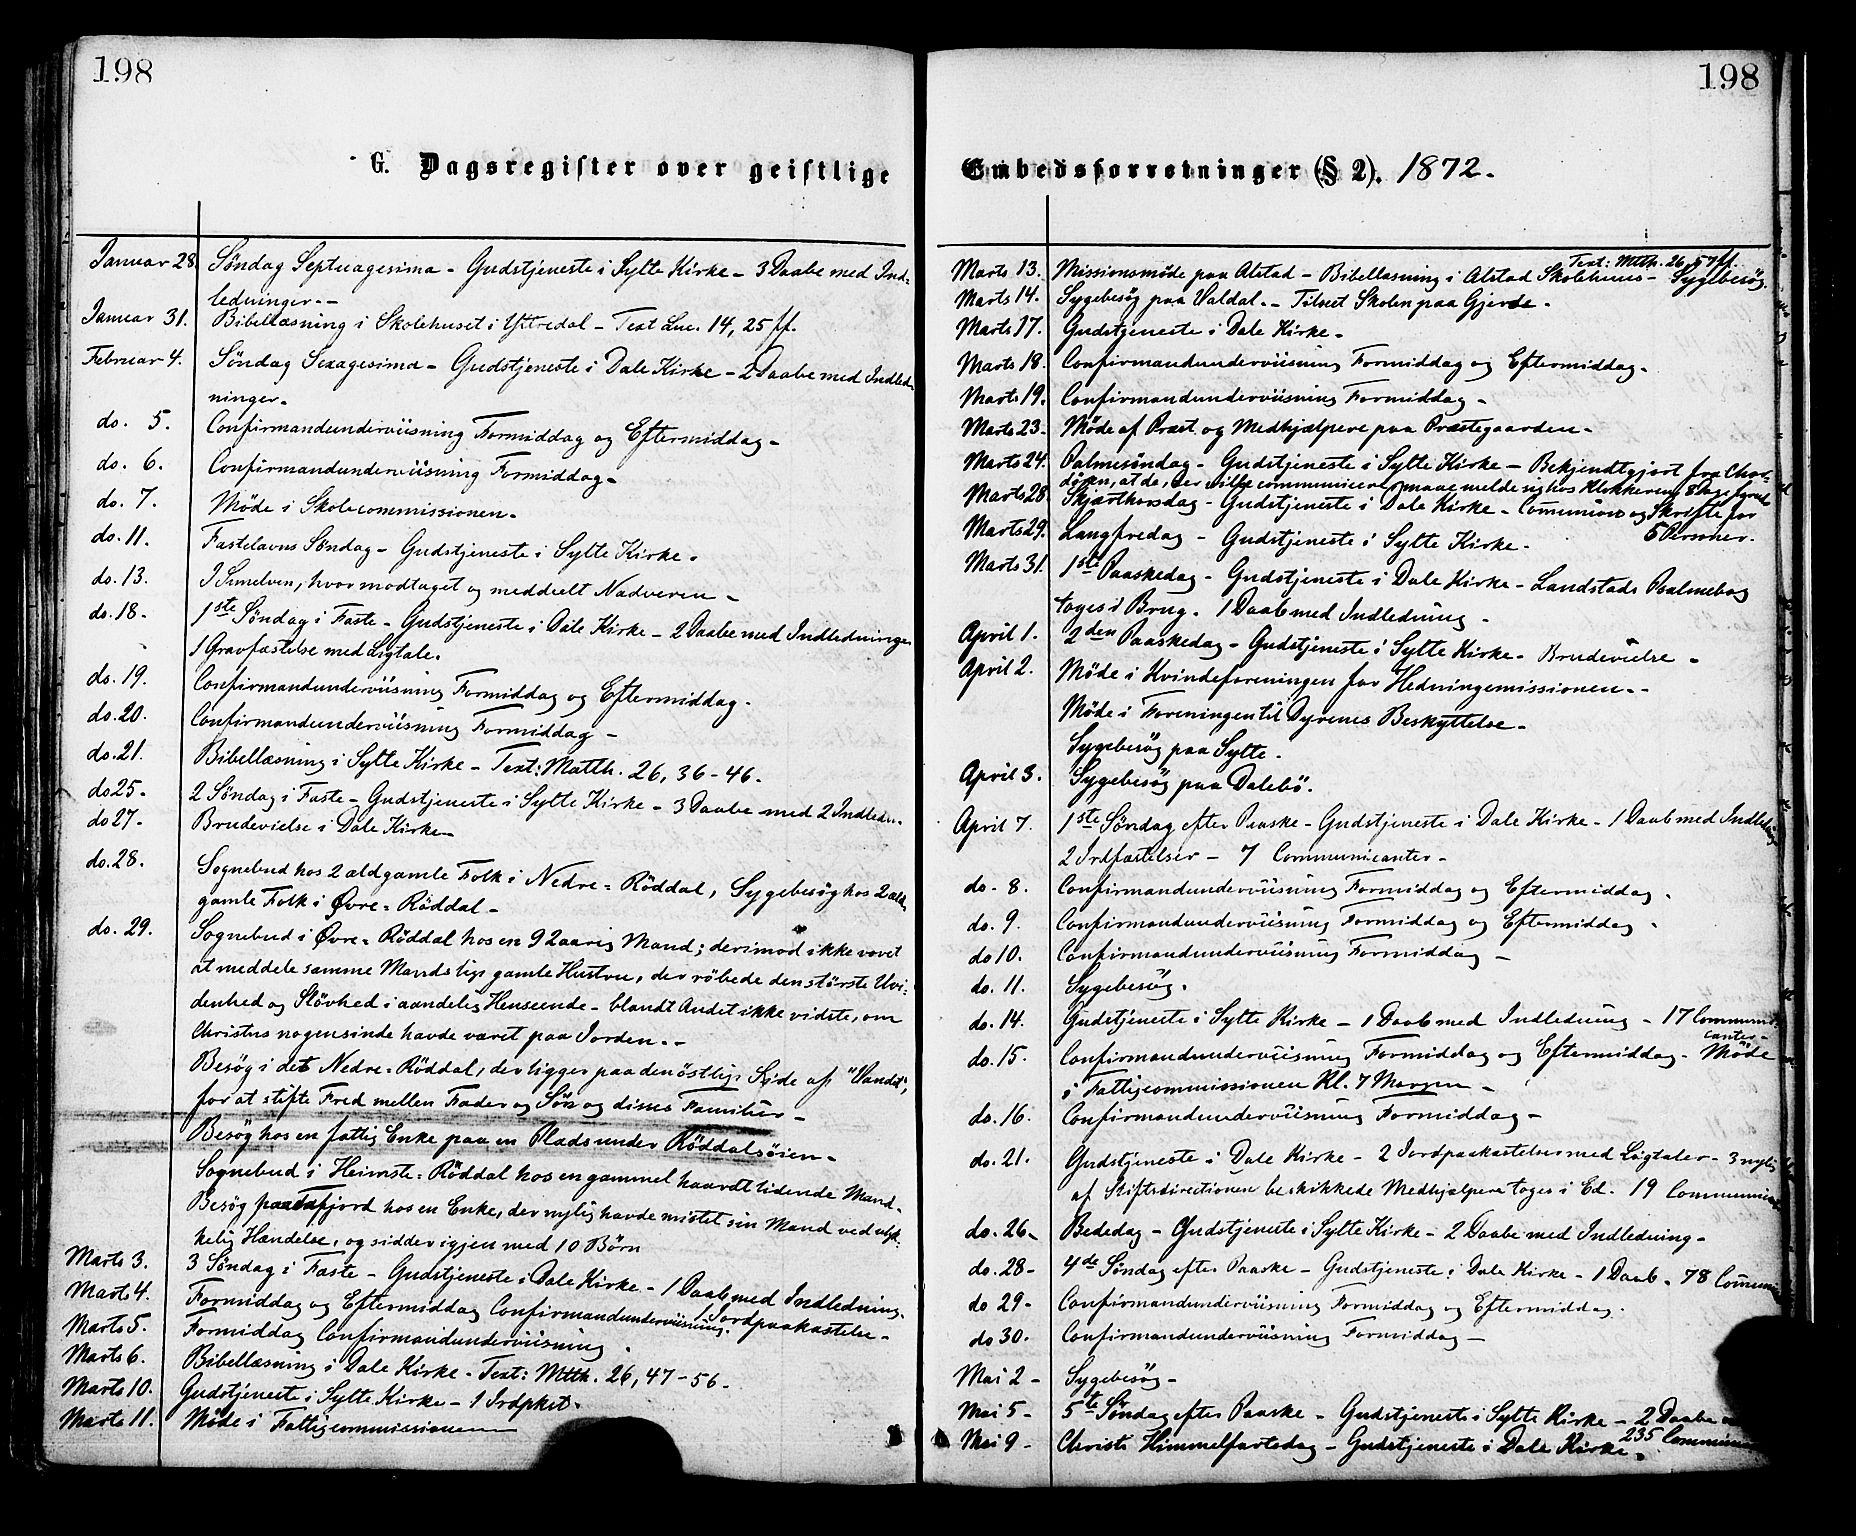 198
G. Dagsregister over geistlige
Januar 28. Söndag Septuagesima - Gudstjeneste i Sylte Kirke - 3 Daabe med Ind-
ledninger. -
Januar 31. Bibellæsning i Skolehuset i Yttredal - Text Luc. 14, 25 ff.
Februar 4. Söndag Sexagesima - Gudstjeneste i Dale Kirke - 2 Daabe med Indled-
ninger.
do. 5. Confirmandunderviisning Formiddag og Eftermiddag -
do. 6. Confirmandunderviisning Formiddag -
do. 7. Möde i Skolecommissionen.
do. 11. Fastelavns Söndag - Gudstjeneste i Sylte Kirke.
do. 13. I Simelven, hvor modtaget og meddeelt Nadveren -
do. 18. 1ste Söndag i Faste - Gudstjeneste i Dale Kirke - 2 Daabe med Indledninger
1 Gravfæstelse med Ligtale.
do. 19. Confirmandunderviisning Formiddag og Eftermiddag.
do. 20. Confirmandunderviisning Formiddag -
do. 21. Bibellæsning i Sylte Kirke - Text: Matth. 26, 36-46.
do 25. 2 Söndag i Faste - Gudstjeneste i Sylte Kirke - 3 Daabe med 2 Indledn.
do 27. Brudevielse i Dale Kirke
do. 28. Sognebud hos 2 ældgamle Folk i Nedre-Röddal, Sygebesög hos 2 æld-
gamle Folk i Øvre-Röddal -
do. 29. Sognebud i Øvre-Röddal hos en 92aarig Mand; derimod ikke voret
at meddele samme Mands lige gamle Hustru, der röbede den störste Uvi-
denhed og Slövhed i aandelig Henseende - blandt Andet ikke vidste, om
Christus nogensinde havde været paa Jorden. -
Besög i det Nedre-Röddal, der ligger paa den östlige Side af "Vandet",
for at stifte Fred mellem Fader og Sön og disses Familier -
Besög hos en fattig Enke paa en Plads under Röddalsöien -
Sognebud i Heimste-Röddal hos en gammel haardt lidende Mand -
Besög paa Tafjord hos en Enke, der nylig havde mistet sin Mand ved ulyk-
kelig Hændelse, og sidder igjen med 10 Börn
Marts 3. 3 Söndag i Faste - Gudstjeneste i Dale Kirke - 1 Daab med Indledning.
1 Jordpaakastelse -
Marts 4. Formiddag og Eftermiddag Confirmandunderviisning.
Marts 5. Formiddag Confirmandunderviisning.
Marts 6. Bibellæsning i Dale Kirke - Text: Mtth. 26, 47-56 -
Marts 10. Gudstjeneste i Sylte Kirke - 1 Jrdpkst.
Marts 11. Möde i Fattigcommissionen
198
Embedsforretninger (§ 2). 1872.
Text: Mtth. 26, 57 ff.
Marts 13. Missionsmöde paa Alstad - Bibellæsning i Alstad Skolehuus - Sygebesög.
Marts 14. Sygebesög paa Valdal. - Tilseet Skolen paa Gjerde.
Marts 17. Gudstjeneste i Dale Kirke -
Marts 18. Confirmandunderviisning Formiddag og Eftermiddag.
Marts 19. Confirmandunderviisning Formiddag -
Marts 23. Möde af Præst og Medhjælpere paa Præstegaarden -
Marts 24. Palmesöndag - Gudstjeneste i Sylte Kirke - Bekjendtgjort fra Chor-
dören, at de, der ville communicere, maae melde sig hos Klokkeren 8 Dage forud
Marts 28. Skjærthorsdag - Gudstjeneste i Dale Kirke - Communion og Skrifte for
5 Personer.
Marts 29. Langfredag - Gudstjeneste i Sylte Kirke.
Marts 31. 1ste Paaskedag - Gudstjeneste i Dale Kirke - Landstads Psalmebog
toges i Brug. 1 Daab med Indledning.
April 1. 2den Paaskedag - Gudstjeneste i Sylte Kirke - Brudevielse -
April 2. Möde i Kvindeforeningen for Hedningemissionen. -
Möde i Foreningen til Dyrenes Beskyttelse -
Sygebesög paa Sylte.
April 3. Sygebesög paa Dalebö.
April 7. 1ste Söndag efter Paaske - Gudstjeneste i Dale Kirke - 1 Daab med Indledning
2 Jrdfæstelser - 7 Communicanter -
do. 8. Confirmandunderviisning Formiddag og Eftermiddag.
do. 9. Confirmandunderviisning Formiddag og Eftermiddag.
do 10. Confirmandunderviisning Formiddag -
do. 11. Sygebesög.
do. 14. Gudstjeneste i Sylte Kirke - 1 Daab med Indledning - 17 Communi-
canter -
do. 15. Confirmandunderviisning Formiddag og Eftermiddag - Möde
i Fattigcommissionen Kl. 7 Morgen -
do. 16. Confirmandunderviisning Formiddag -
do. 21. Gudstjeneste i Dale Kirke - 2 Jordpaakastelser med Ligtaler - 3 nylig
af Stiftsdirectionen beskikkede Medhjælpere toges i Ed. 19 Communicant
do. 26. Bededag - Gudstjeneste i Sylte Kirke - 2 Daabe med Indledning -
do. 28. 4de Söndag efter Paaske - Gudstjeneste i Dale Kirke - 1 Daab. 78 Commun
do 29. Confirmandunderviisning Formiddag og Eftermiddag.
do 30. Confirmandunderviisning Formiddag -
Mai 2 - Sygebesög -
Mai 5 - 5te Söndag efter Paaske - Gudstjeneste i Sylte Kirke - 2 Daabe
235 Commun
Mai 9 - Christi Himmelfartsdag - Gudstjeneste i Dale Kirke.